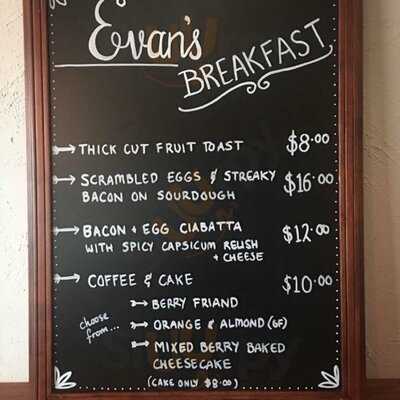 Evan's
BREAKFAST
THICK CUT FRUIT TOAST $8.00
SCRAMBLED EGGS & STREAKY $16.00
BACON ON SOURDOUGH
BACON + EGG CIABATTA $12.00
WITH SPICY CAPSICUM RELISH
+ CHEESE
COFFEE & CAKE $10.00
choose
from...
BERRY FRIAND
ORANGE & ALMOND (GF)
MIXED BERRY BAKED
CHEESECAKE
(CAKE ONLY $8.00)